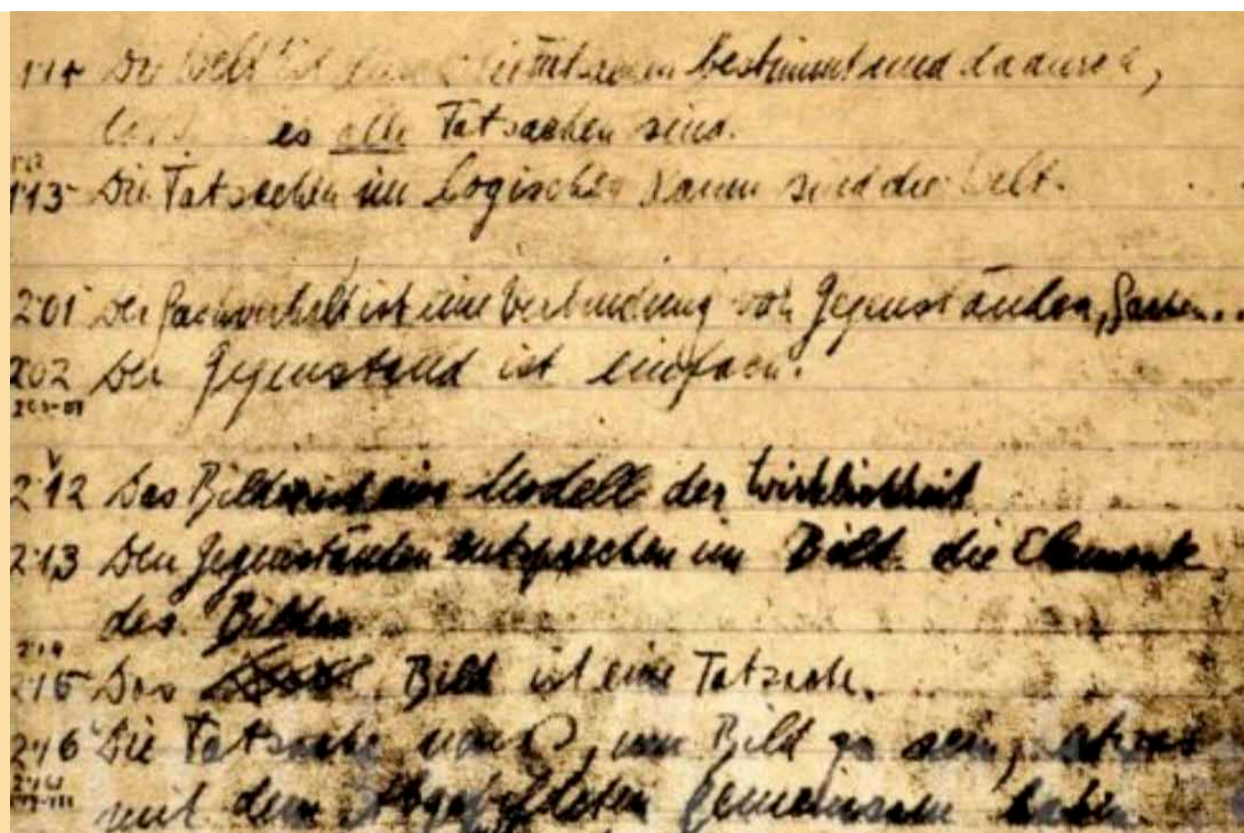 1'11 Die Welt ist durch die Tatsachen bestimmt und dadurch,
dass es alle Tatsachen sind.
1'12
1'13 Die Tatsachen im logischen Raum sind die Welt.
2'01 Der Sachverhalt ist eine Verbindung von Gegenständen, Sachen...
2'02 Der Gegenstand ist einfach.
2'12 Das Bild ist ein Modell der Wirklichkeit
2'13 Den Gegenständen entsprechen im Bild die Elemente
des Bildes
2'14
2'15 Das Bild ist eine Tatsache.
2'16 Die Tatsache muß, um Bild zu sein, etwas
2'161
mit dem Abgebildeten gemeinsam haben.